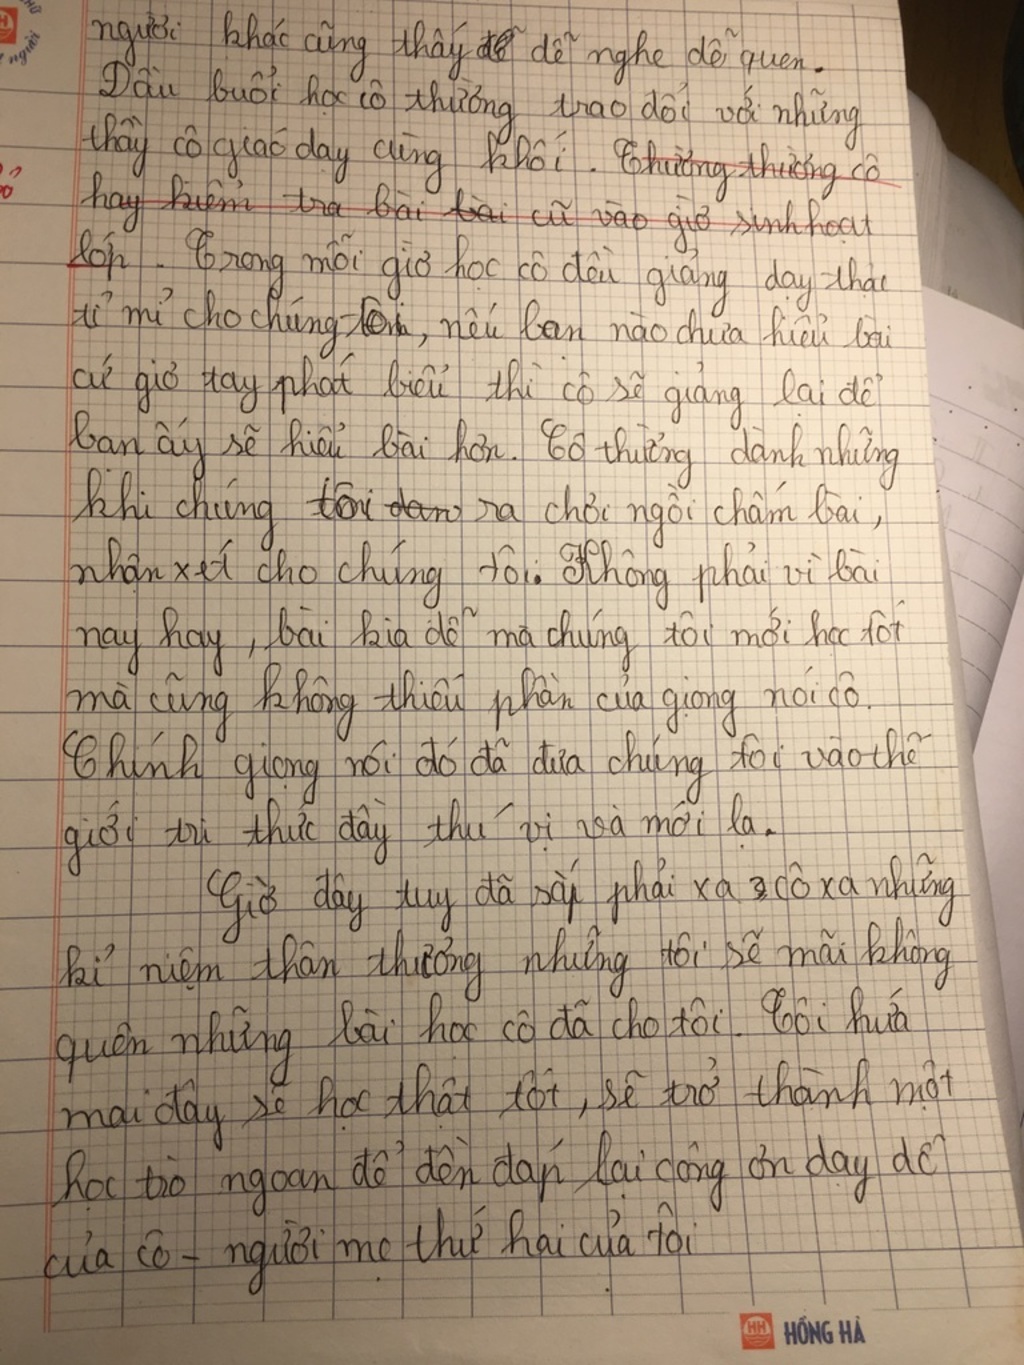 người khác cũng thấy dễ nghe dễ quen.
Đầu buổi học cô thường trao đổi với những
thầy cô giáo dạy cùng khối. Thường thường cô
hay kiểm tra bài bài cũ vào giờ sinh hoạt
lớp. Trong mỗi giờ học cô đều giảng dạy thật
tỉ mỉ cho chúng tôi, nếu bạn nào chưa hiểu bài
cứ giơ tay phát biểu thì cô sẽ giảng lại để
bạn ấy sẽ hiểu bài hơn. Cô thường dành những
khi chúng tôi ra chơi ngồi chấm bài,
nhận xét cho chúng tôi. Không phải vì bài
nay hay, bài kia dễ mà chúng tôi mới học tốt
mà cũng không thiếu phần của giọng nói cô.
Chính giọng nói đó đã đưa chúng tôi vào thế
giới tri thức đầy thú vị và mới lạ.
Giờ đây tuy đã sắp phải xa cô xa những
kỉ niệm thân thương nhưng tôi sẽ mãi không
quên những bài học cô đã cho tôi. Tôi hứa
mai đây sẽ học thật tốt, sẽ trở thành một
học trò ngoan để đền đáp lại công ơn dạy dỗ
của cô - người mẹ thứ hai của tôi
HH HỒNG HÀ